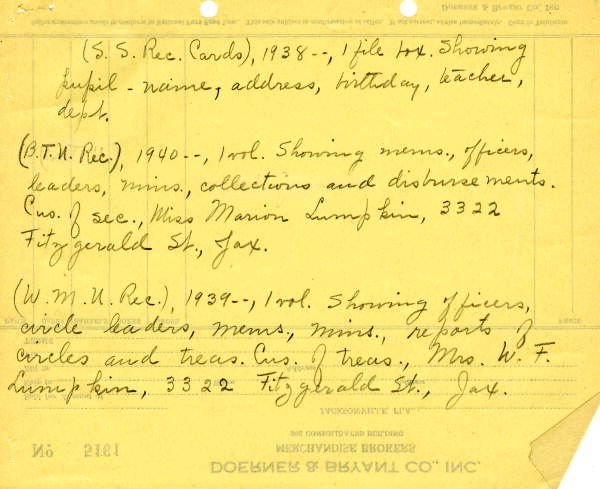 (S. S. Rec. Cards), 1938--, 1 file box. Showing
pupil - name, address, birthday, teacher,
dept.
(B.T.U. Rec.), 1940--, 1 vol. Showing mems., officers,
leaders, mins., collections and disbursements.
Cus. of sec., Miss Marion Lumpkin, 3322
Fitzgerald St., Jax.
(W.M.U. Rec.), 1939--, 1 vol. Showing officers,
circle leaders, mems., mins., reports of
circles and treas. Cus. of treas., Mrs. W. F.
Lumpkin, 3322 Fitzgerald St., Jax.
JACKSONVILLE, FLA.
302 CONSOLIDATED BUILDING
No 5161
MERCHANDISE BROKERS
DOERNER & BRYANT CO., INC.